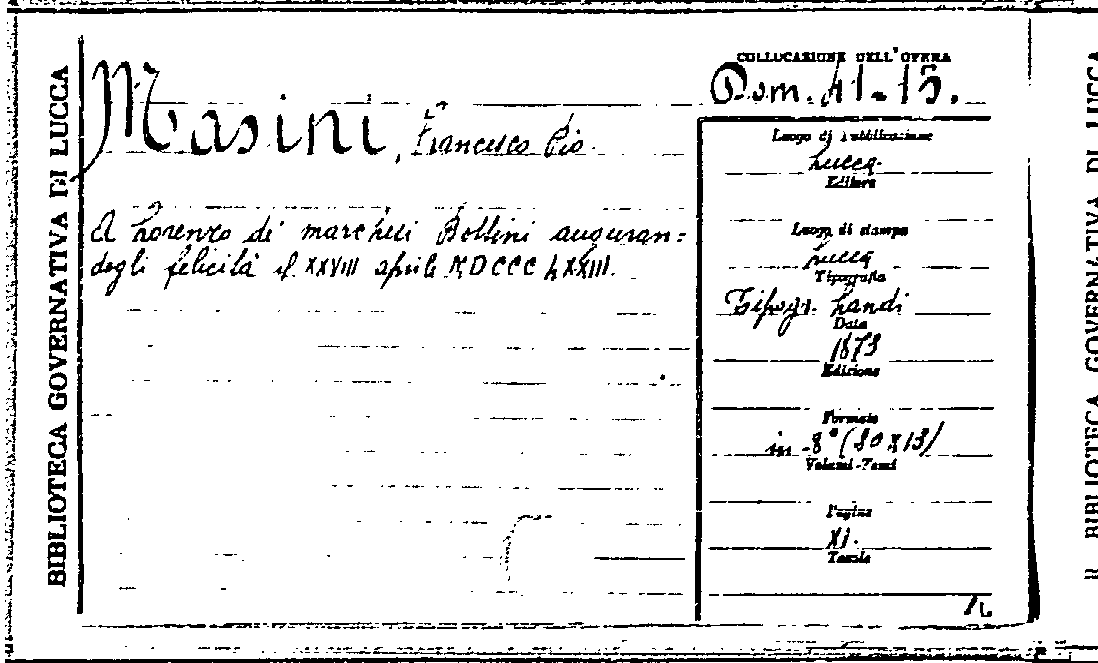 BIBLIOTECA GOVERNATIVA DI LUCCA
COLLOCAZIONE DELL'OPERA
Dom. 41-15.
Masini, Francesco Pio.
A Lorenzo di marchesi Bottini auguran=
degli felicità il XXVIII aprile MDCCCLXXIII.
Luogo di pubblicazione
Lucca.
Editore
Luogo di stampa
Lucca
Tipografia
Tipogr. Landi
Data
1873
Edizione
Formato
in-8° (20x13)
Volumi-Tomi
Pagine
XI.
Tavole
BIBLIOTECA GOVERNATIVA DI LUCCA